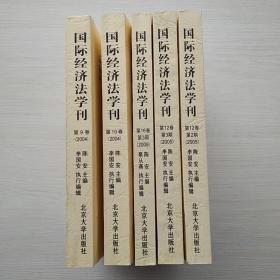 国际经济法学刊
第9卷
(2004)
陈安 主编
李国安 执行编辑
北京大学出版社
国际经济法学刊
第10卷
(2004)
陈安 主编
李国安 执行编辑
北京大学出版社
国际经济法学刊
第16卷
第3期
(2009)
陈安 主编
蔡从燕 执行编辑
北京大学出版社
国际经济法学刊
第12卷
第3期
(2005)
陈安 主编
李国安 执行编辑
北京大学出版社
国际经济法学刊
第12卷
第2期
(2005)
陈安 主编
李国安 执行编辑
北京大学出版社